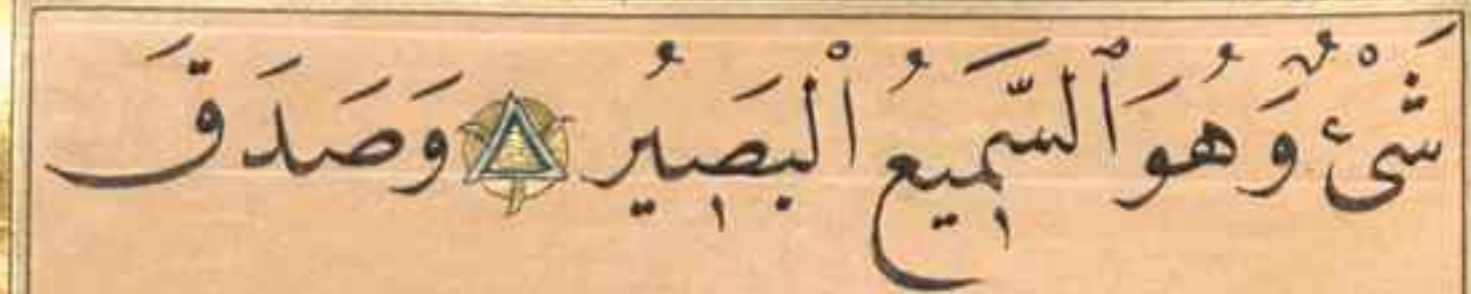 شَىْءٌ وَهُوَ ٱلسَّمِيعُ ٱلْبَصِيرُ وَصَدَقَ